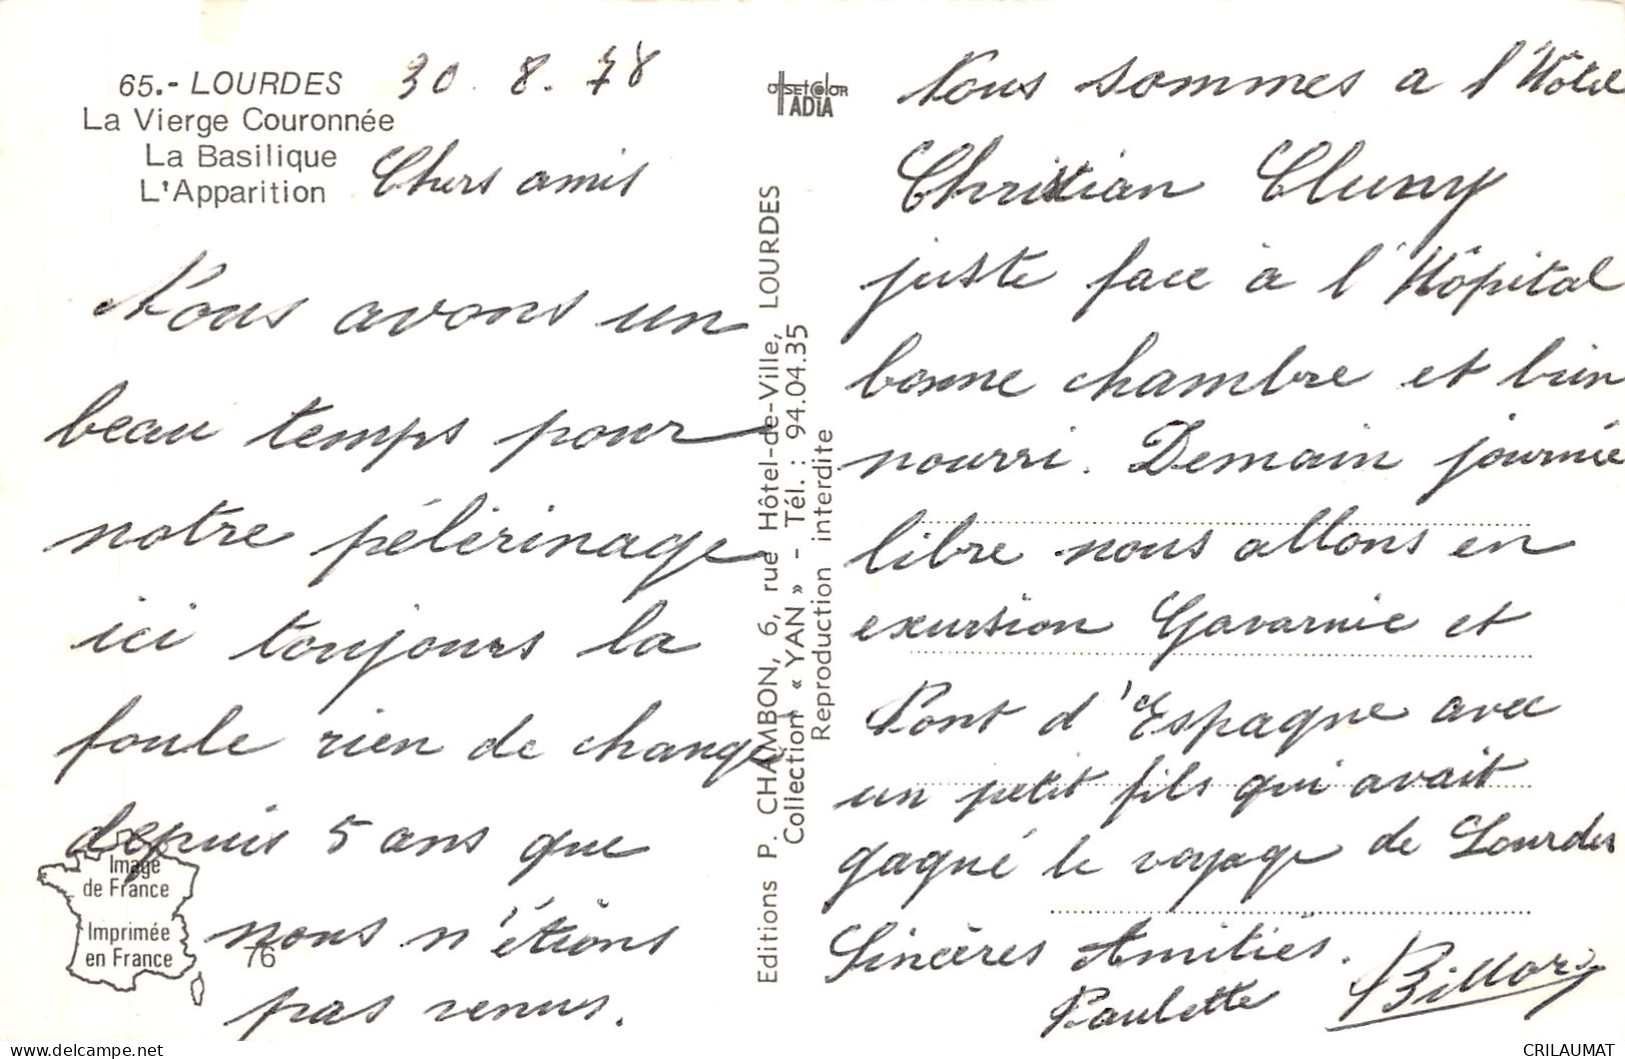 65.- LOURDES
La Vierge Couronnée
La Basilique
L'Apparition
30.8.78
Chers amis
Nous avons un
beau temps pour
notre pélérinage
ici toujours la
foule rien de changé
depuis 5 ans que
nous n'étions
pas venus.
Image
de France
Imprimée
en France
76
offsetcolor
ADIA
Editions P. CHAMBON, 6, rue Hôtel-de-Ville, LOURDES
Collection « YAN » - Tél. : 94.04.35
Reproduction interdite
Nous sommes a l'Hôtel
Christian Cluny
juste face à l'Hôpital
bonne chambre et bien
nourri. Demain journée
libre nous allons en
exursion Gavarnie et
Pont d'Espagne avec
un petit fils qui avait
gagné le voyage de Lourdes
Sincères Amitiés.
Paulette
CRILAUMAT